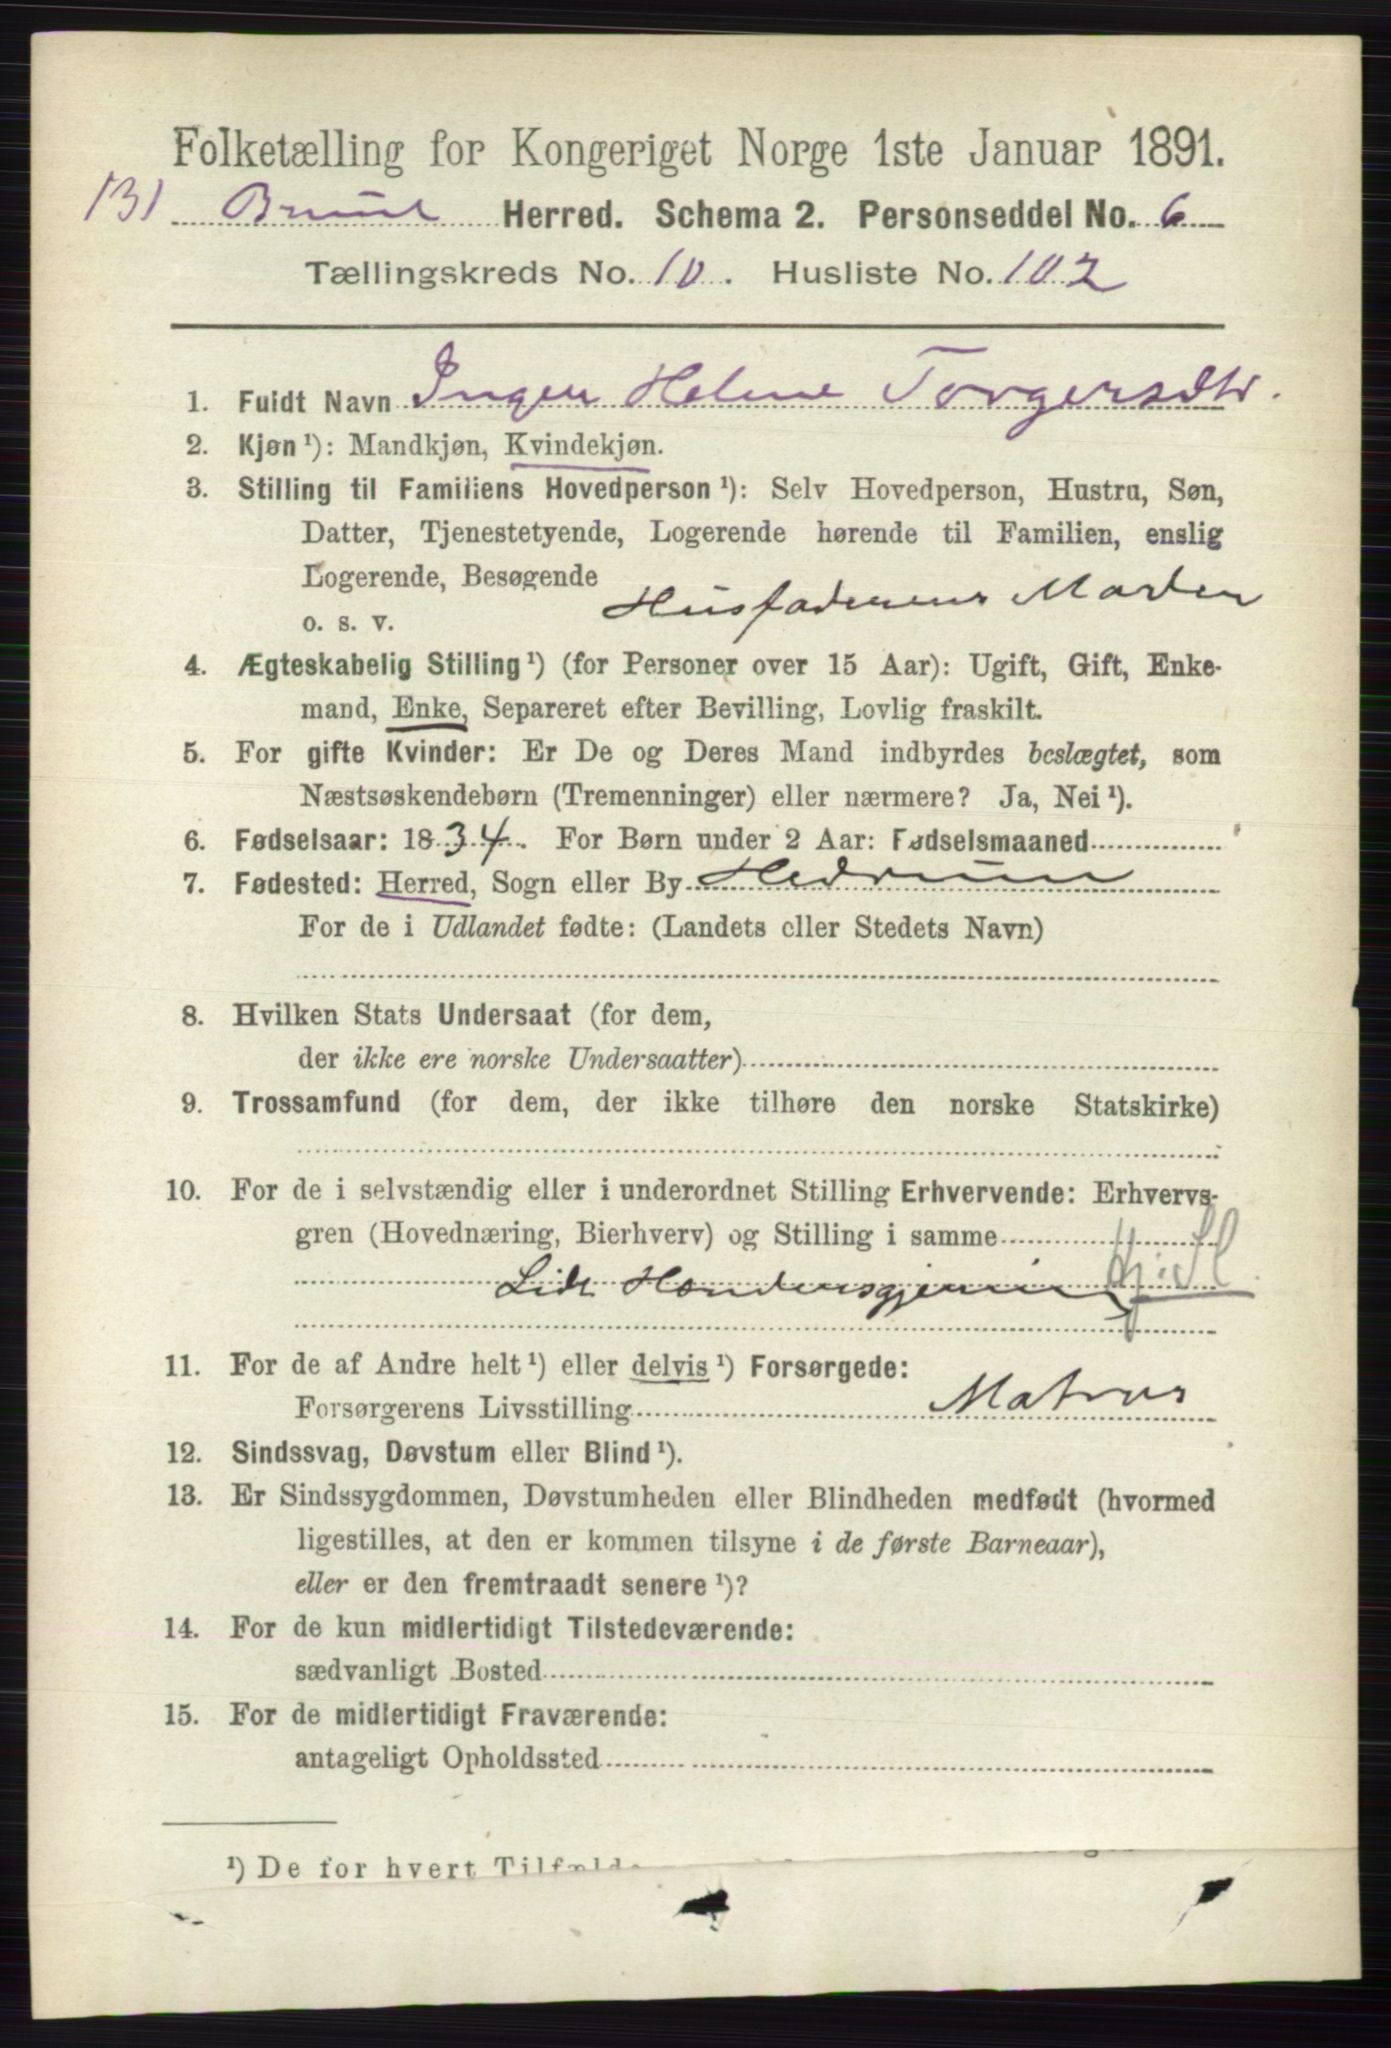 Folketælling for Kongeriget Norge 1ste Januar 1891.
131 Brunl Herred. Schema 2. Personseddel No. 6
Tællingskreds No. 10. Husliste No. 102
1. Fuldt Navn Inger Helene Torgersdtr.
2. Kjøn ¹): Mandkjøn, Kvindekjøn.
3. Stilling til Familiens Hovedperson ¹): Selv Hovedperson, Hustru, Søn,
Datter, Tjenestetyende, Logerende hørende til Familien, enslig
Logerende, Besøgende
o. s. v. Husfaderens Moder
4. Ægteskabelig Stilling ¹) (for Personer over 15 Aar): Ugift, Gift, Enke-
mand, Enke, Separeret efter Bevilling, Lovlig fraskilt.
5. For gifte Kvinder: Er De og Deres Mand indbyrdes beslægtet, som
Næstsøskendebørn (Tremenninger) eller nærmere? Ja, Nei ¹).
6. Fødselsaar: 1834. For Børn under 2 Aar: Fødselsmaaned
7. Fødested: Herred, Sogn eller By Hedrum
For de i Udlandet fødte: (Landets eller Stedets Navn)
8. Hvilken Stats Undersaat (for dem,
der ikke ere norske Undersaatter)
9. Trossamfund (for dem, der ikke tilhøre den norske Statskirke)
10. For de i selvstændig eller i underordnet Stilling Erhvervende: Erhvervs-
gren (Hovednæring, Bierhverv) og Stilling i samme
Lidt Haandensgjerning
11. For de af Andre helt ¹) eller delvis ¹) Forsørgede:
Forsørgerens Livsstilling Matros
12. Sindssvag, Døvstum eller Blind ¹).
13. Er Sindssygdommen, Døvstumheden eller Blindheden medfødt (hvormed
ligestilles, at den er kommen tilsyne i de første Barneaar),
eller er den fremtraadt senere ¹)?
14. For de kun midlertidigt Tilstedeværende:
sædvanligt Bosted
15. For de midlertidigt Fraværende:
antageligt Opholdssted
¹) De for hvert Tilfælde